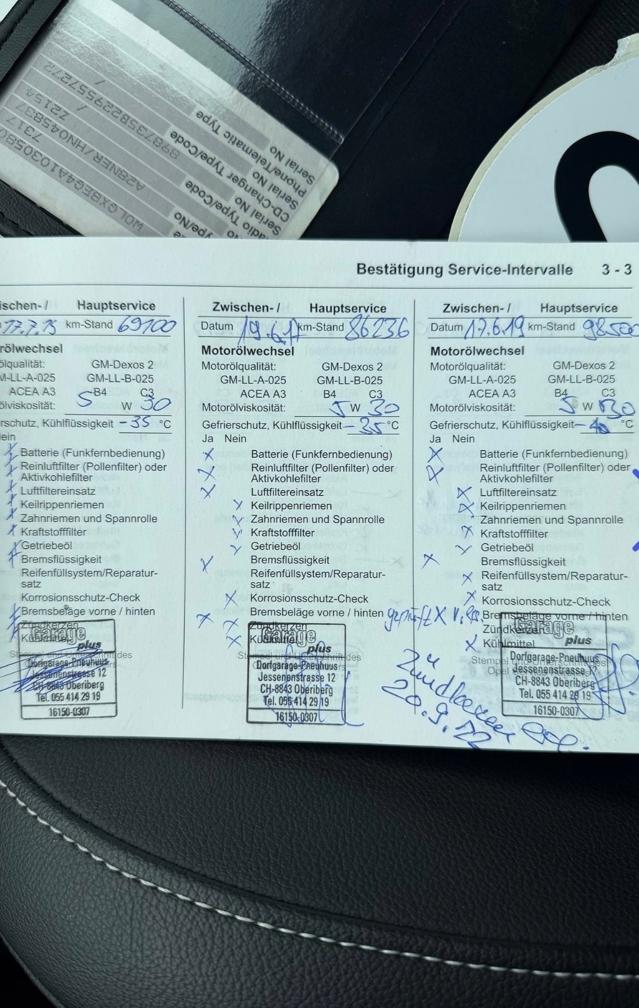 WOLGXBEG4A1030580
7317
A2BNER/HN045837
7215A
898735822955727Z
Type/No
Radio Type/Code
Serial No
CD-Changer Type/Code
Serial No
Phone/Telematic Type
Serial No
Bestätigung Service-Intervalle 3 - 3
ischen-/ Hauptservice
17.7.15 km-Stand 69100
orölwechsel
ölqualität: GM-Dexos 2
M-LL-A-025 GM-LL-B-025
ACEA A3 B4 C3
ölviskosität: 5 W 30
erschutz, Kühlflüssigkeit -35 °C
ein
Batterie (Funkfernbedienung)
Reinluftfilter (Pollenfilter) oder
Aktivkohlefilter
Luftfiltereinsatz
Keilrippenriemen
Zahnriemen und Spannrolle
Kraftstofffilter
Getriebeöl
Bremsflüssigkeit
Reifenfüllsystem/Reparatur-
satz
Korrosionsschutz-Check
Bremsbeläge vorne / hinten
Zündkerzen
Garage
plus
Dorfgarage-Pneuhuus
Jessenenstrasse 12
CH-8843 Oberiberg
Tel. 055 414 29 19
16150-0307
Zwischen- / Hauptservice
Datum 19.6.17 km-Stand 86236
Motorölwechsel
Motorölqualität: GM-Dexos 2
GM-LL-A-025 GM-LL-B-025
ACEA A3 B4 C3
Motorölviskosität: 5 W 30
Gefrierschutz, Kühlflüssigkeit -35 °C
Ja Nein
Batterie (Funkfernbedienung)
Reinluftfilter (Pollenfilter) oder
Aktivkohlefilter
Luftfiltereinsatz
Keilrippenriemen
Zahnriemen und Spannrolle
Kraftstofffilter
Getriebeöl
Bremsflüssigkeit
Reifenfüllsystem/Reparatur-
satz
Korrosionsschutz-Check
Bremsbeläge vorne / hinten
Zündkerzen
Kühlmittel
Garage
plus
Dorfgarage-Pneuhuus
Jessenenstrasse 12
CH-8843 Oberiberg
Tel. 055 414 29 19
16150-0307
Zwischen- / Hauptservice
Datum 17.6.19 km-Stand 98500
Motorölwechsel
Motorölqualität: GM-Dexos 2
GM-LL-A-025 GM-LL-B-025
ACEA A3 B4 C3
Motorölviskosität: 5 W 30
Gefrierschutz, Kühlflüssigkeit -40 °C
Ja Nein
Batterie (Funkfernbedienung)
Reinluftfilter (Pollenfilter) oder
Aktivkohlefilter
Luftfiltereinsatz
Keilrippenriemen
Zahnriemen und Spannrolle
Kraftstofffilter
Getriebeöl
Bremsflüssigkeit
Reifenfüllsystem/Reparatur-
satz
Korrosionsschutz-Check
geprüft Bremsbeläge vorne / hinten
Zündkerzen
Kühlmittel
Garage
plus
Dorfgarage-Pneuhuus
Jessenenstrasse
CH-8843 Oberiberg
Tel. 055 414 29 19
16150-0307
Zündkerzen
20.9.22